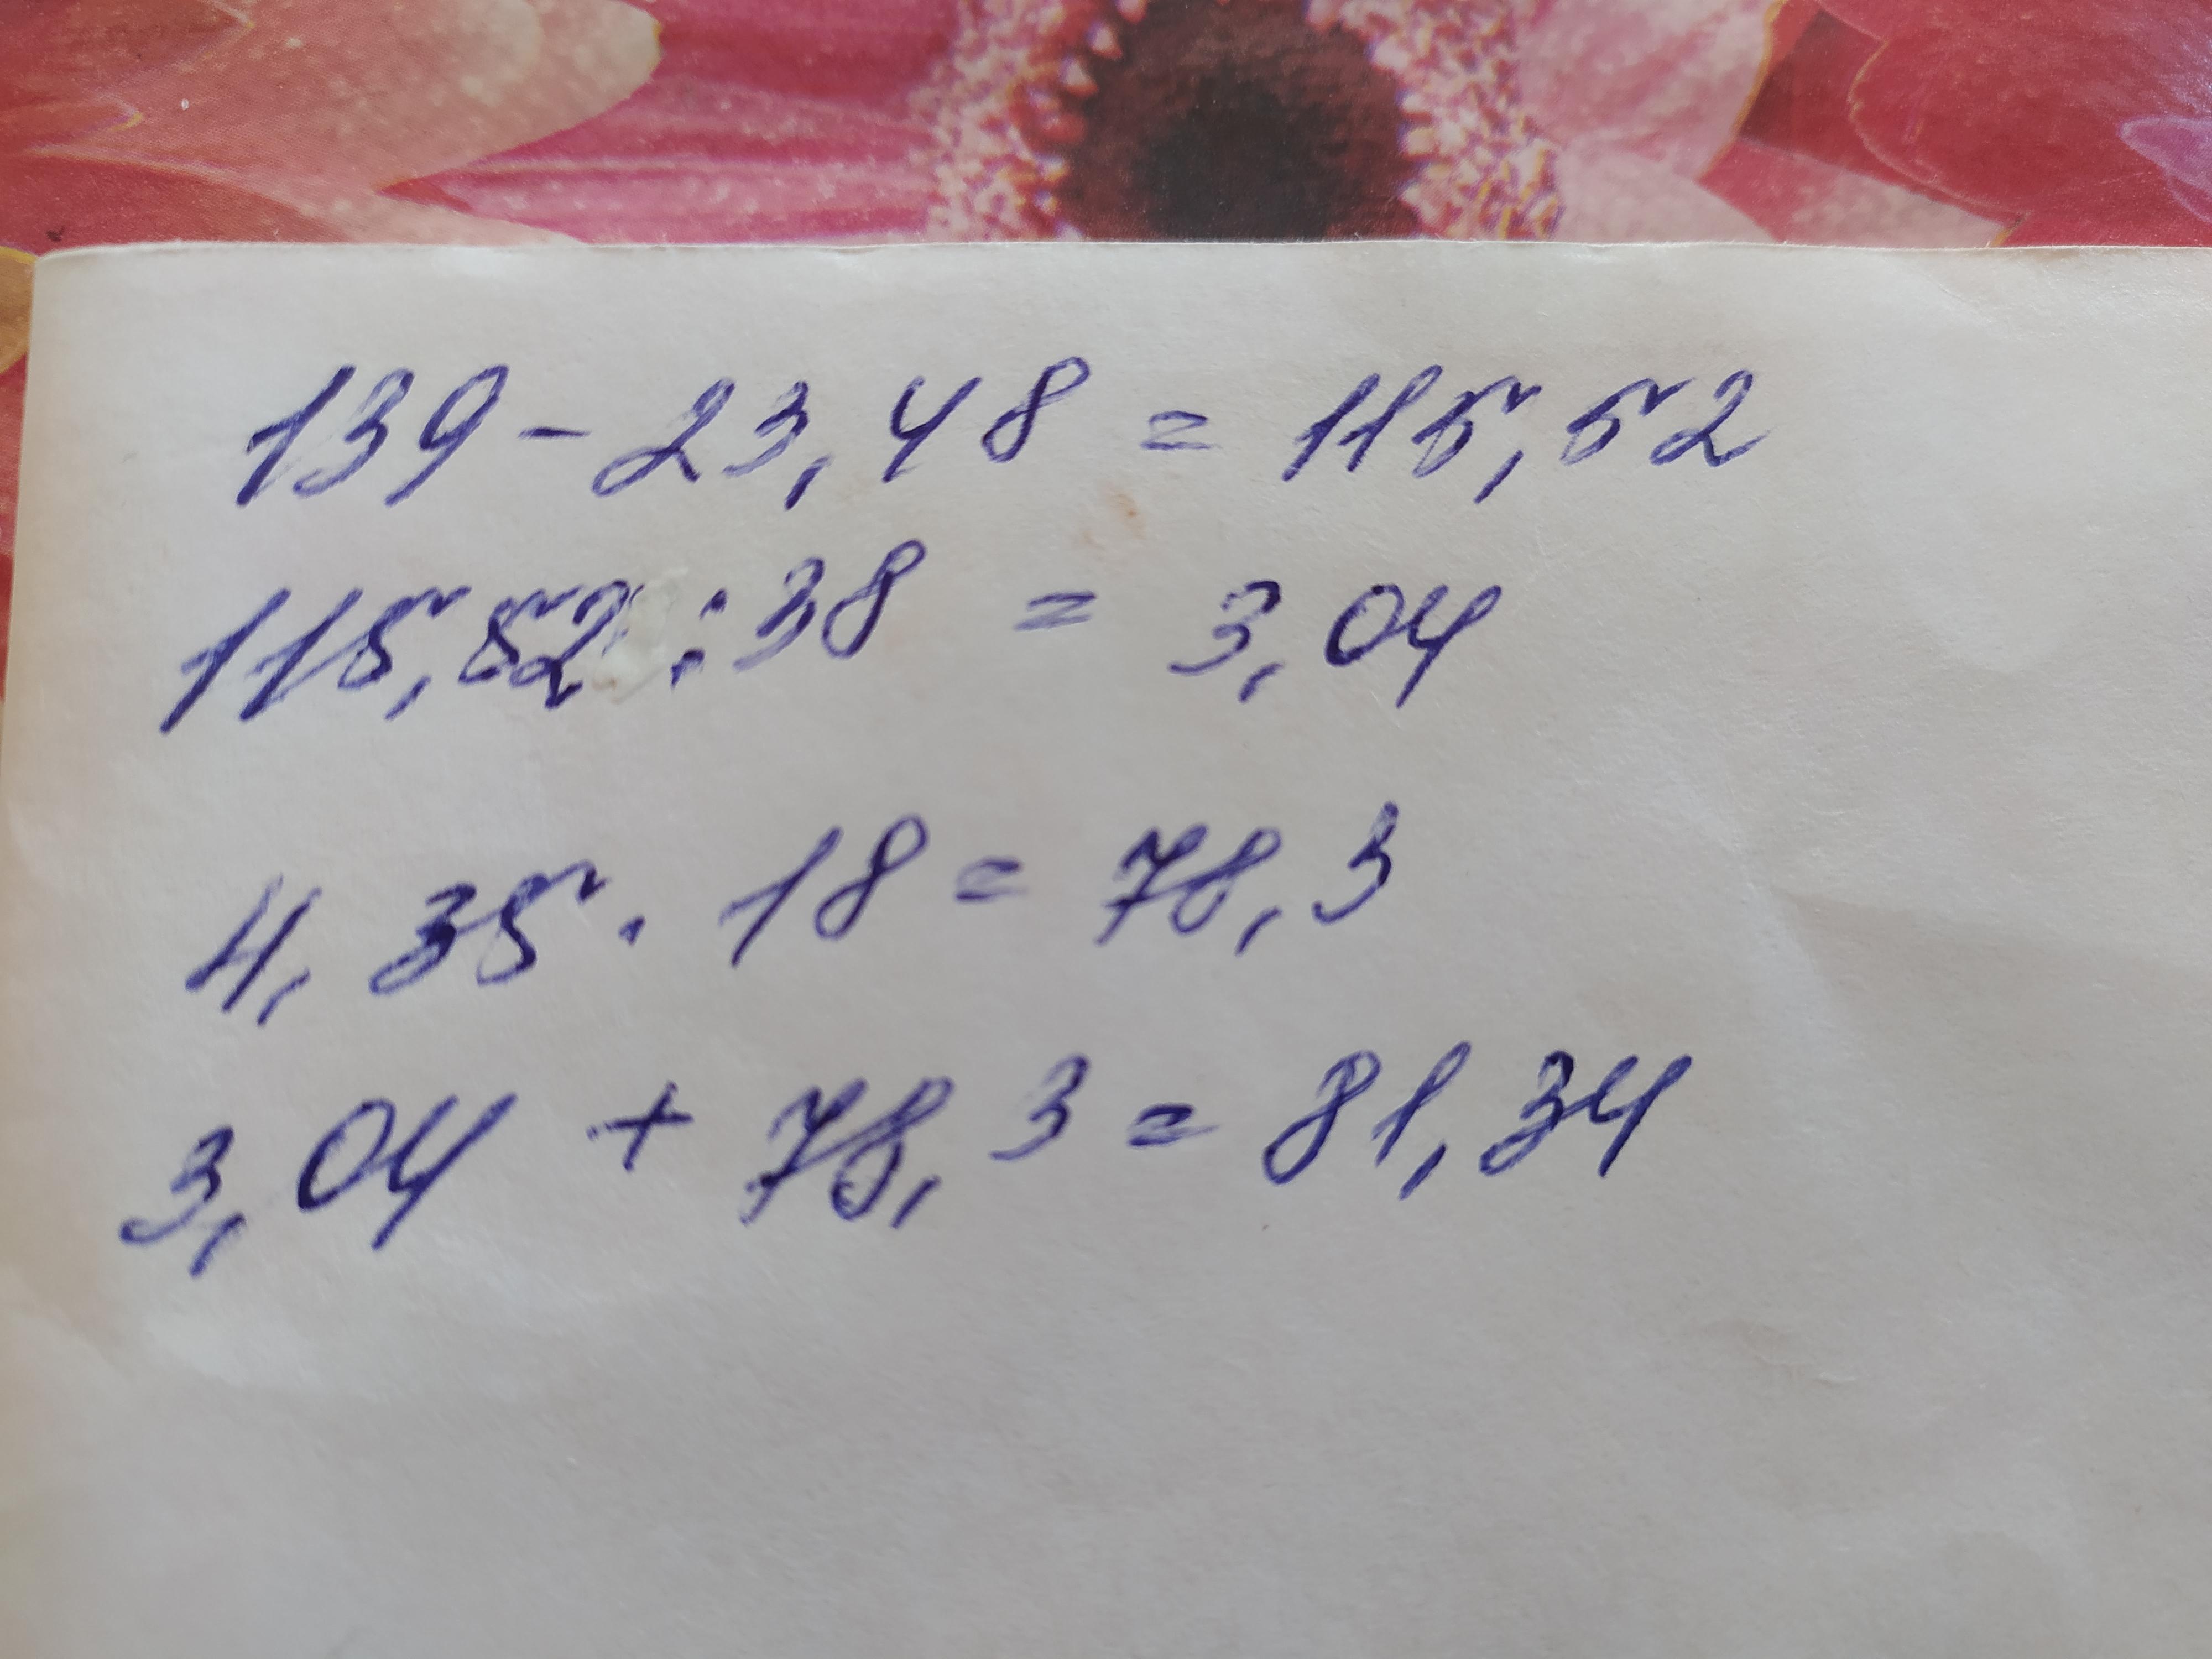 139 - 23,48 = 115,52
115,52 : 38 = 3,04
4,35 · 18 = 78,3
3,04 + 78,3 = 81,34